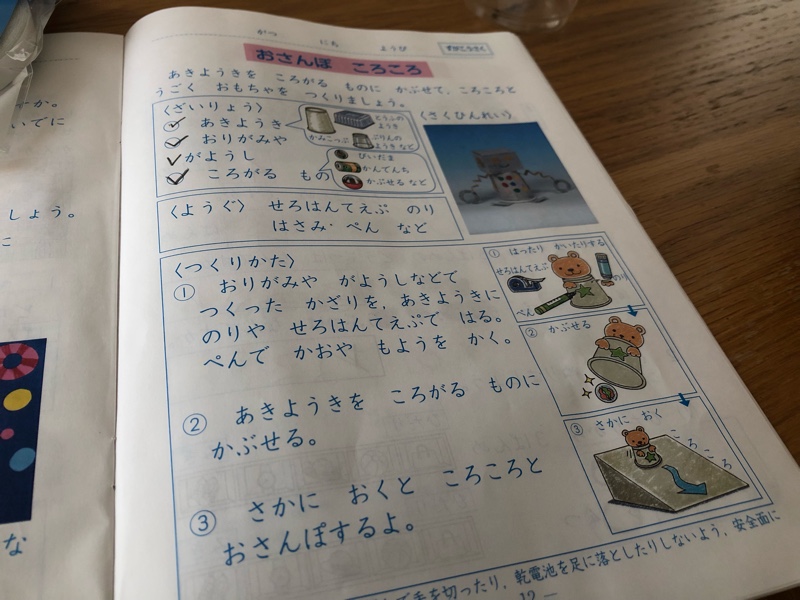 がつ　にち　ようび
ずがこうさく
おさんぽ　ころころ
あきようきを　ころがる　ものに　かぶせて、ころころと
うごく　おもちゃを　つくりましょう。
〈ざいりょう〉
あきようき
おりがみや
がようし
ころがる　もの
とうふの
ようき
かみこっぷ
ぷりんの
ようき など
びいだま
かんでんち
かぷせる など
〈さくひんれい〉
〈ようぐ〉　せろはんてえぷ　のり
はさみ・ぺん　など
〈つくりかた〉
①　おりがみや　がようしなどで
つくった　かざりを、あきようきに
のりや　せろはんてえぷで　はる。
ぺんで　かおや　もようを　かく。
②　あきようきを　ころがる　ものに
かぶせる。
③　さかに　おくと　ころころと
おさんぽするよ。
①　はったり　かいたりする
せろはんてえぷ
のり
ぺん
②　かぶせる
③　さかに　おく
ころころ
で手を切ったり、乾電池を足に落としたりしないよう、安全面に
しょう。
いでに
か。
に
な